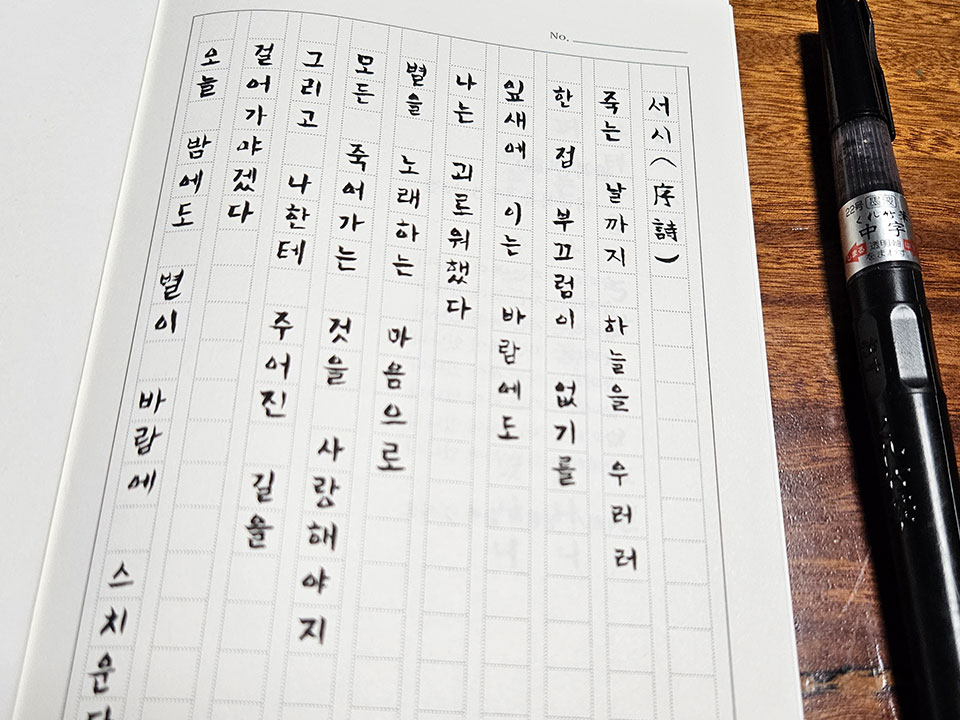 No.
서시(序詩)
죽는 날까지 하늘을 우러러
한 접 부끄럼이 없기를
잎새에 이는 바람에도
나는 괴로워했다
별을 노래하는 마음으로
모든 죽어가는 것을 사랑해야지
그리고 나한테 주어진 길을
걸어가야겠다
오늘 밤에도 별이 바람에 스치운다
22号
くれ竹
中字